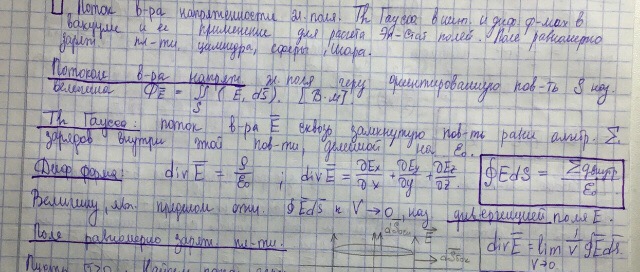 Поток в-ра напряженности эл. поля. Th Гаусса в инт. и диф. ф-мах в
вакууме и её применение для расчета Эл-Стат полей. Поле равномерно
заряж пл-ти, цилиндра, сферы, шара.
Потоком в-ра напряж эл поля через ориентированную пов-ть S наз.
величина Φ_E = ∬_S (E̅, dS̅). [В·м]
Th Гаусса: поток в-ра E̅ сквозь замкнутую пов-ть равен алгебр. Σ
зарядов внутри этой пов-ти, делённой на ε₀.
Диф форма: div E̅ = ρ/ε₀ ; div E̅ = ∂Ex/∂x + ∂Ey/∂y + ∂Ez/∂z.
∮EdS = Σqвнутр/ε₀
Величину, явл. пределом отн. ∮E̅dS̅ к V→0, наз. дивергенцией поля E.
Поле равномерно заряж. пл-ти.
dSбок E̅
dSбок
div E̅ = lim V→0 1/V ∮E̅dS̅.